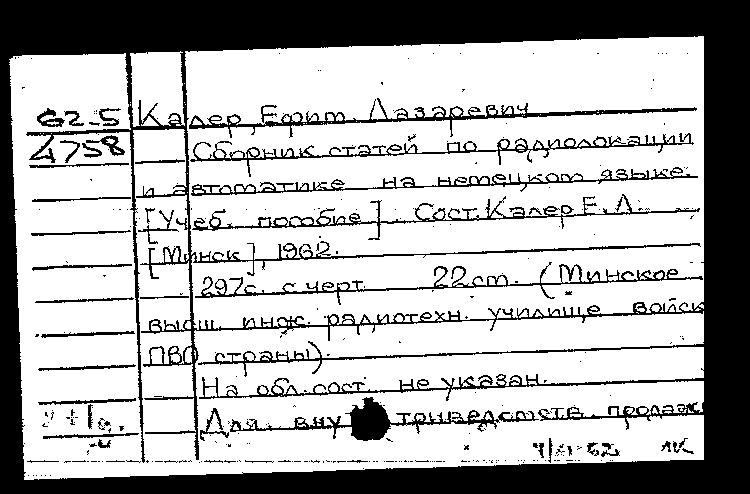 62-5 Калер, Ефим Лазаревич
4758 Сборник статей по радиолокации
и автоматике на немецком языке.
[Учеб. пособие]. Сост. Калер Е. Л.
[Минск], 1962.
297с. с черт. 22см. (Минское
высш. инж. радиотехн. училище войск
ПВО страны).
На обл. сост. не указан.
Для внутриведомств. продажи